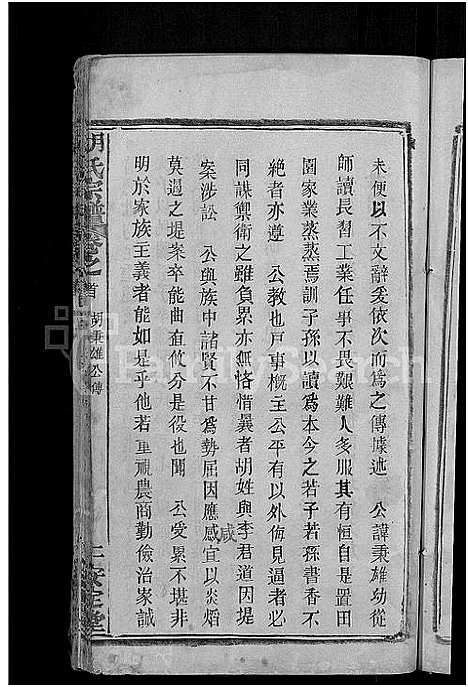 未便以不文辭爰依次而為之傳據述 公諱秉雄幼從
師讀長習工業任事不畏艱難人多服其有恒自是置田
園家業蒸蒸焉訓子孫以讀為本今之若子若孫書香不
絶者亦遵 公教也戶事概主公平有以外侮見逼者必
同謀禦衛之雖負累亦無恪惜曩者胡姓與李君道因堤
案涉訟 公與族中諸賢不甘為勢屈因應咸宜以炎熖
咸
莫遏之堤案卒能曲直攸分是役也聞 公受累不堪非
明於家族主義者能如是乎他若重視農商勤儉治家誠
胡氏宗譜 卷之首 胡秉雄公傳 安定堂
FamilySearch